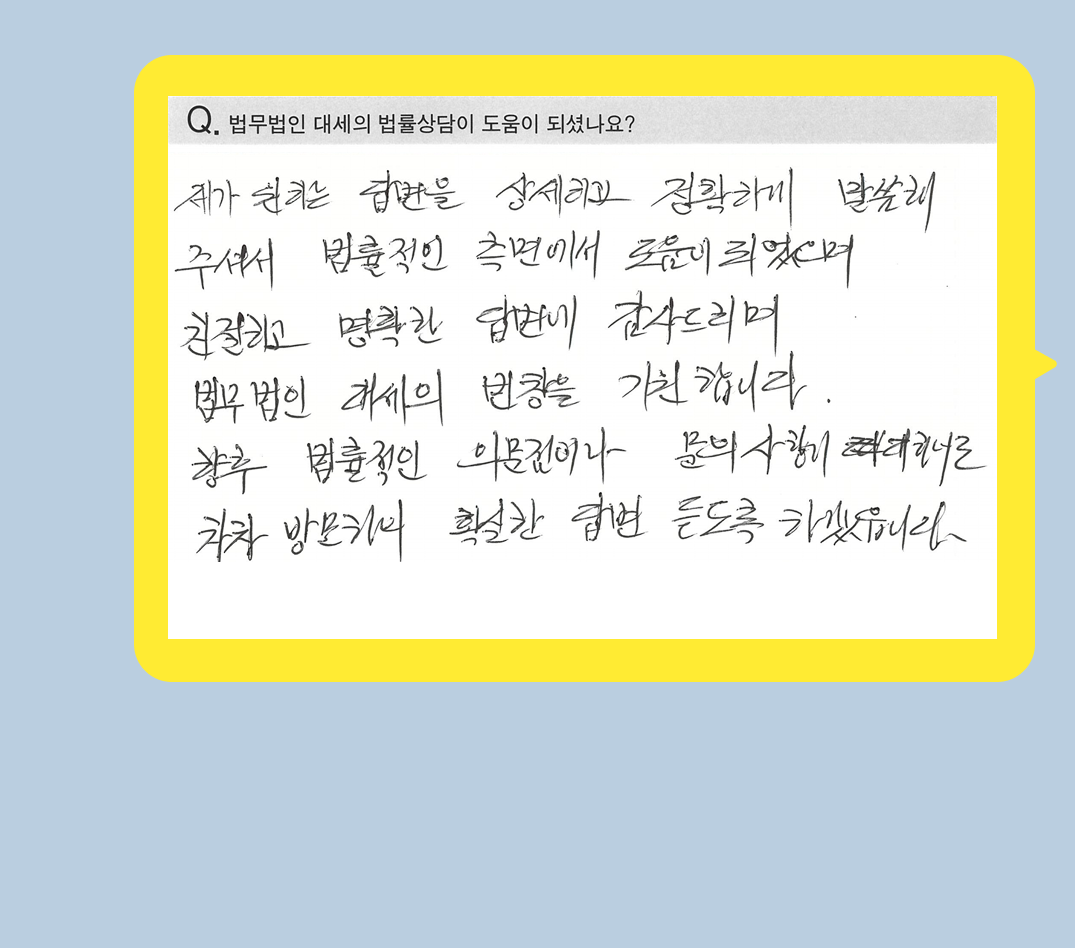 Q. 법무법인 대세의 법률상담이 도움이 되셨나요?
제가 원하는 답변을 상세하고 정확하게 말씀해
주셔서 법률적인 측면에서 도움이 되었으며
친절하고 명확한 답변에 감사드리며
법무법인 대세의 번창을 기원합니다.
향후 법률적인 의문점이나 문의사항이
차차 방문하여 확실한 답변 듣도록 하겠습니다.